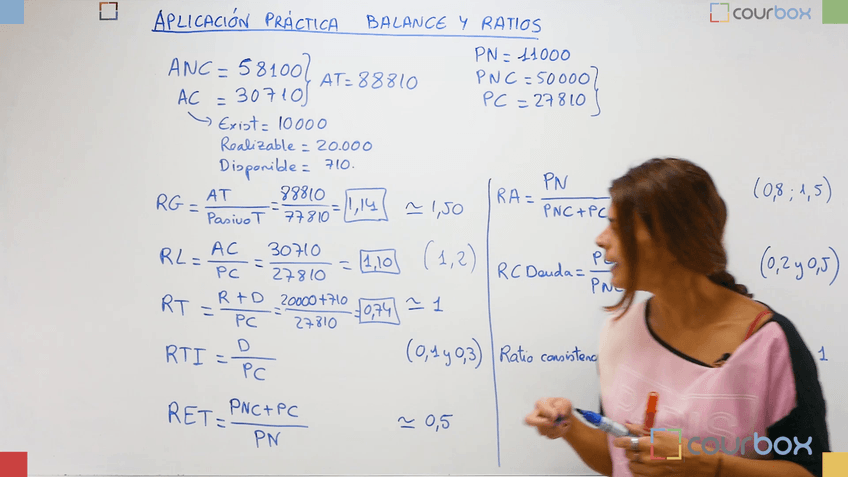 APLICACIÓN PRÁCTICA BALANCE Y RATIOS
courbox
ANC = 58100
AC = 30710
AT = 88810
Exist = 10000
Realizable = 20.000
Disponible = 710.
PN = 11000
PNC = 50000
PC = 27810
RG = AT / Pasivo T = 88810 / 77810 = 1,14 ≃ 1,50
RL = AC / PC = 30710 / 27810 = 1,10 (1,2)
RT = R + D / PC = 20000+710 / 27810 = 0,74 ≃ 1
RTI = D / PC (0,1 y 0,3)
RET = PNC + PC / PN ≃ 0,5
RA = PN / PNC + PC (0,8 ; 1,5)
RC Deuda = (0,2 y 0,5)
Ratio 1
courbox